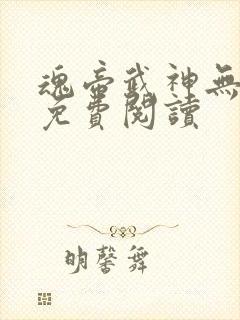 魂帝武神無
免費閱讀
明馨舞